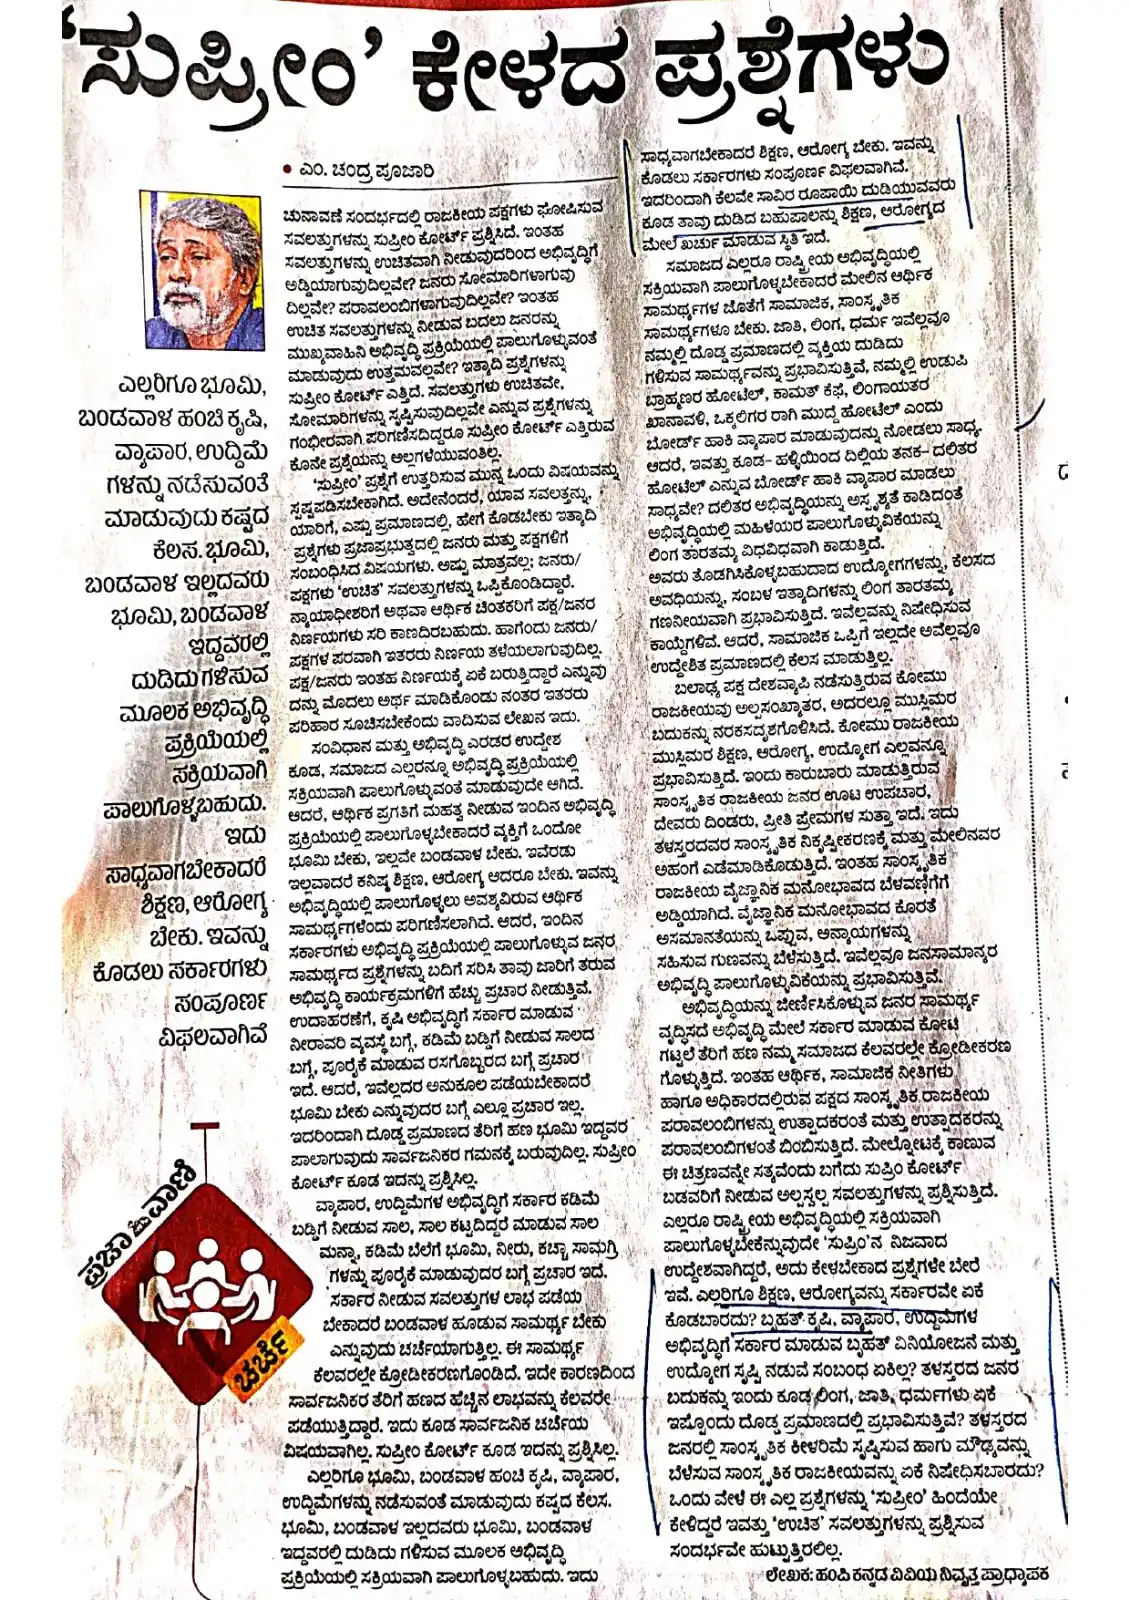 ‘ಸುಪ್ರೀಂ’ ಕೇಳದ ಪ್ರಶ್ನೆಗಳು
• ಎಂ. ಚಂದ್ರ ಪೂಜಾರಿ
ಎಲ್ಲರಿಗೂ ಭೂಮಿ,
ಬಂಡವಾಳ ಹಂಚಿ ಕೃಷಿ,
ವ್ಯಾಪಾರ, ಉದ್ದಿಮೆ
ಗಳನ್ನು ನಡೆಸುವಂತೆ
ಮಾಡುವುದು ಕಷ್ಟದ
ಕೆಲಸ. ಭೂಮಿ,
ಬಂಡವಾಳ ಇಲ್ಲದವರು
ಭೂಮಿ, ಬಂಡವಾಳ
ಇದ್ದವರಲ್ಲಿ
ದುಡಿದು ಗಳಿಸುವ
ಮೂಲಕ ಅಭಿವೃದ್ಧಿ
ಪ್ರಕ್ರಿಯೆಯಲ್ಲಿ
ಸಕ್ರಿಯವಾಗಿ
ಪಾಲುಗೊಳ್ಳಬಹುದು.
ಇದು
ಸಾಧ್ಯವಾಗಬೇಕಾದರೆ
ಶಿಕ್ಷಣ, ಆರೋಗ್ಯ
ಬೇಕು. ಇವನ್ನು
ಕೊಡಲು ಸರ್ಕಾರಗಳು
ಸಂಪೂರ್ಣ
ವಿಫಲವಾಗಿವೆ
ಪ್ರಜಾವಾಣಿ
ಚರ್ಚೆ
ಚುನಾವಣೆ ಸಂದರ್ಭದಲ್ಲಿ ರಾಜಕೀಯ ಪಕ್ಷಗಳು ಘೋಷಿಸುವ
ಸವಲತ್ತುಗಳನ್ನು ಸುಪ್ರೀಂ ಕೋರ್ಟ್ ಪ್ರಶ್ನಿಸಿದೆ. ಇಂತಹ
ಸವಲತ್ತುಗಳನ್ನು ಉಚಿತವಾಗಿ ನೀಡುವುದರಿಂದ ಅಭಿವೃದ್ಧಿಗೆ
ಅಡ್ಡಿಯಾಗುವುದಿಲ್ಲವೇ? ಜನರು ಸೋಮಾರಿಗಳಾಗುವು
ದಿಲ್ಲವೇ? ಪರಾವಲಂಬಿಗಳಾಗುವುದಿಲ್ಲವೇ? ಇಂತಹ
ಉಚಿತ ಸವಲತ್ತುಗಳನ್ನು ನೀಡುವ ಬದಲು ಜನರನ್ನು
ಮುಖ್ಯವಾಹಿನಿ ಅಭಿವೃದ್ಧಿ ಪ್ರಕ್ರಿಯೆಯಲ್ಲಿ ಪಾಲುಗೊಳ್ಳುವಂತೆ
ಮಾಡುವುದು ಉತ್ತಮವಲ್ಲವೇ? ಇತ್ಯಾದಿ ಪ್ರಶ್ನೆಗಳನ್ನು
ಸುಪ್ರೀಂ ಕೋರ್ಟ್ ಎತ್ತಿದೆ. ಸವಲತ್ತುಗಳು ಉಚಿತವೇ,
ಸೋಮಾರಿಗಳನ್ನು ಸೃಷ್ಟಿಸುವುದಿಲ್ಲವೇ ಎನ್ನುವ ಪ್ರಶ್ನೆಗಳನ್ನು
ಗಂಭೀರವಾಗಿ ಪರಿಗಣಿಸದಿದ್ದರೂ ಸುಪ್ರೀಂ ಕೋರ್ಟ್ ಎತ್ತಿರುವ
ಕೊನೇ ಪ್ರಶ್ನೆಯನ್ನು ಅಲ್ಲಗಳೆಯುವಂತಿಲ್ಲ.
‘ಸುಪ್ರೀಂ’ ಪ್ರಶ್ನೆಗೆ ಉತ್ತರಿಸುವ ಮುನ್ನ ಒಂದು ವಿಷಯವನ್ನು
ಸ್ಪಷ್ಟಪಡಿಸಬೇಕಾಗಿದೆ. ಅದೇನೆಂದರೆ, ಯಾವ ಸವಲತ್ತನ್ನು,
ಯಾರಿಗೆ, ಎಷ್ಟು ಪ್ರಮಾಣದಲ್ಲಿ, ಹೇಗೆ ಕೊಡಬೇಕು ಇತ್ಯಾದಿ
ಪ್ರಶ್ನೆಗಳು ಪ್ರಜಾಪ್ರಭುತ್ವದಲ್ಲಿ ಜನರು ಮತ್ತು ಪಕ್ಷಗಳಿಗೆ
ಸಂಬಂಧಿಸಿದ ವಿಷಯಗಳು. ಅಷ್ಟು ಮಾತ್ರವಲ್ಲ; ಜನರು/
ಪಕ್ಷಗಳು ‘ಉಚಿತ’ ಸವಲತ್ತುಗಳನ್ನು ಒಪ್ಪಿಕೊಂಡಿದ್ದಾರೆ.
ನ್ಯಾಯಾಧೀಶರಿಗೆ ಅಥವಾ ಆರ್ಥಿಕ ಚಿಂತಕರಿಗೆ ಪಕ್ಷ/ಜನರ
ನಿರ್ಣಯಗಳು ಸರಿ ಕಾಣದಿರಬಹುದು. ಹಾಗೆಂದು ಜನರು/
ಪಕ್ಷಗಳ ಪರವಾಗಿ ಇತರರು ನಿರ್ಣಯ ತಳೆಯಲಾಗುವುದಿಲ್ಲ.
ಪಕ್ಷ/ಜನರು ಇಂತಹ ನಿರ್ಣಯಕ್ಕೆ ಏಕೆ ಬರುತ್ತಿದ್ದಾರೆ ಎನ್ನುವು
ದನ್ನು ಮೊದಲು ಅರ್ಥ ಮಾಡಿಕೊಂಡು ನಂತರ ಇತರರು
ಪರಿಹಾರ ಸೂಚಿಸಬೇಕೆಂದು ವಾದಿಸುವ ಲೇಖನ ಇದು.
ಸಂವಿಧಾನ ಮತ್ತು ಅಭಿವೃದ್ಧಿ ಎರಡರ ಉದ್ದೇಶ
ಕೂಡ, ಸಮಾಜದ ಎಲ್ಲರನ್ನೂ ಅಭಿವೃದ್ಧಿ ಪ್ರಕ್ರಿಯೆಯಲ್ಲಿ
ಸಕ್ರಿಯವಾಗಿ ಪಾಲುಗೊಳ್ಳುವಂತೆ ಮಾಡುವುದೇ ಆಗಿದೆ.
ಆದರೆ, ಆರ್ಥಿಕ ಪ್ರಗತಿಗೆ ಮಹತ್ವ ನೀಡುವ ಇಂದಿನ ಅಭಿವೃದ್ಧಿ
ಪ್ರಕ್ರಿಯೆಯಲ್ಲಿ ಪಾಲುಗೊಳ್ಳಬೇಕಾದರೆ ವ್ಯಕ್ತಿಗೆ ಒಂದೋ
ಭೂಮಿ ಬೇಕು, ಇಲ್ಲವೇ ಬಂಡವಾಳ ಬೇಕು. ಇವೆರಡು
ಇಲ್ಲವಾದರೆ ಕನಿಷ್ಠ ಶಿಕ್ಷಣ, ಆರೋಗ್ಯ ಆದರೂ ಬೇಕು. ಇವನ್ನು
ಅಭಿವೃದ್ಧಿಯಲ್ಲಿ ಪಾಲುಗೊಳ್ಳಲು ಅವಶ್ಯವಿರುವ ಆರ್ಥಿಕ
ಸಾಮರ್ಥ್ಯಗಳೆಂದು ಪರಿಗಣಿಸಲಾಗಿದೆ. ಆದರೆ, ಇಂದಿನ
ಸರ್ಕಾರಗಳು ಅಭಿವೃದ್ಧಿ ಪ್ರಕ್ರಿಯೆಯಲ್ಲಿ ಪಾಲುಗೊಳ್ಳುವ ಜನರ
ಸಾಮರ್ಥ್ಯದ ಪ್ರಶ್ನೆಗಳನ್ನು ಬದಿಗೆ ಸರಿಸಿ ತಾವು ಜಾರಿಗೆ ತರುವ
ಅಭಿವೃದ್ಧಿ ಕಾರ್ಯಕ್ರಮಗಳಿಗೆ ಹೆಚ್ಚು ಪ್ರಚಾರ ನೀಡುತ್ತಿವೆ.
ಉದಾಹರಣೆಗೆ, ಕೃಷಿ ಅಭಿವೃದ್ಧಿಗೆ ಸರ್ಕಾರ ಮಾಡುವ
ನೀರಾವರಿ ವ್ಯವಸ್ಥೆ ಬಗ್ಗೆ, ಕಡಿಮೆ ಬಡ್ಡಿಗೆ ನೀಡುವ ಸಾಲದ
ಬಗ್ಗೆ, ಪೂರೈಕೆ ಮಾಡುವ ರಸಗೊಬ್ಬರದ ಬಗ್ಗೆ ಪ್ರಚಾರ
ಇದೆ. ಆದರೆ, ಇವೆಲ್ಲದರ ಅನುಕೂಲ ಪಡೆಯಬೇಕಾದರೆ
ಭೂಮಿ ಬೇಕು ಎನ್ನುವುದರ ಬಗ್ಗೆ ಎಲ್ಲೂ ಪ್ರಚಾರ ಇಲ್ಲ.
ಇದರಿಂದಾಗಿ ದೊಡ್ಡ ಪ್ರಮಾಣದ ತೆರಿಗೆ ಹಣ ಭೂಮಿ ಇದ್ದವರ
ಪಾಲಾಗುವುದು ಸಾರ್ವಜನಿಕರ ಗಮನಕ್ಕೆ ಬರುವುದಿಲ್ಲ. ಸುಪ್ರೀಂ
ಕೋರ್ಟ್ ಕೂಡ ಇದನ್ನು ಪ್ರಶ್ನಿಸಿಲ್ಲ.
ವ್ಯಾಪಾರ, ಉದ್ದಿಮೆಗಳ ಅಭಿವೃದ್ಧಿಗೆ ಸರ್ಕಾರ ಕಡಿಮೆ
ಬಡ್ಡಿಗೆ ನೀಡುವ ಸಾಲ, ಸಾಲ ಕಟ್ಟದಿದ್ದರೆ ಮಾಡುವ ಸಾಲ
ಮನ್ನಾ, ಕಡಿಮೆ ಬೆಲೆಗೆ ಭೂಮಿ, ನೀರು, ಕಚ್ಚಾ ಸಾಮಗ್ರಿ
ಗಳನ್ನು ಪೂರೈಕೆ ಮಾಡುವುದರ ಬಗ್ಗೆ ಪ್ರಚಾರ ಇದೆ.
ಸರ್ಕಾರ ನೀಡುವ ಸವಲತ್ತುಗಳ ಲಾಭ ಪಡೆಯ
ಬೇಕಾದರೆ ಬಂಡವಾಳ ಹೂಡುವ ಸಾಮರ್ಥ್ಯ ಬೇಕು
ಎನ್ನುವುದು ಚರ್ಚೆಯಾಗುತ್ತಿಲ್ಲ. ಈ ಸಾಮರ್ಥ್ಯ
ಕೆಲವರಲ್ಲೇ ಕ್ರೋಡೀಕರಣಗೊಂಡಿದೆ. ಇದೇ ಕಾರಣದಿಂದ
ಸಾರ್ವಜನಿಕರ ತೆರಿಗೆ ಹಣದ ಹೆಚ್ಚಿನ ಲಾಭವನ್ನು ಕೆಲವರೇ
ಪಡೆಯುತ್ತಿದ್ದಾರೆ. ಇದು ಕೂಡ ಸಾರ್ವಜನಿಕ ಚರ್ಚೆಯ
ವಿಷಯವಾಗಿಲ್ಲ. ಸುಪ್ರೀಂ ಕೋರ್ಟ್ ಕೂಡ ಇದನ್ನು ಪ್ರಶ್ನಿಸಿಲ್ಲ.
ಎಲ್ಲರಿಗೂ ಭೂಮಿ, ಬಂಡವಾಳ ಹಂಚಿ ಕೃಷಿ, ವ್ಯಾಪಾರ,
ಉದ್ದಿಮೆಗಳನ್ನು ನಡೆಸುವಂತೆ ಮಾಡುವುದು ಕಷ್ಟದ ಕೆಲಸ.
ಭೂಮಿ, ಬಂಡವಾಳ ಇಲ್ಲದವರು ಭೂಮಿ, ಬಂಡವಾಳ
ಇದ್ದವರಲ್ಲಿ ದುಡಿದು ಗಳಿಸುವ ಮೂಲಕ ಅಭಿವೃದ್ಧಿ
ಪ್ರಕ್ರಿಯೆಯಲ್ಲಿ ಸಕ್ರಿಯವಾಗಿ ಪಾಲುಗೊಳ್ಳಬಹುದು. ಇದು
ಸಾಧ್ಯವಾಗಬೇಕಾದರೆ ಶಿಕ್ಷಣ, ಆರೋಗ್ಯ ಬೇಕು. ಇವನ್ನು
ಕೊಡಲು ಸರ್ಕಾರಗಳು ಸಂಪೂರ್ಣ ವಿಫಲವಾಗಿವೆ.
ಇದರಿಂದಾಗಿ ಕೆಲವೇ ಸಾವಿರ ರೂಪಾಯಿ ದುಡಿಯುವವರು
ಕೂಡ ತಾವು ದುಡಿದ ಬಹುಪಾಲನ್ನು ಶಿಕ್ಷಣ, ಆರೋಗ್ಯದ
ಮೇಲೆ ಖರ್ಚು ಮಾಡುವ ಸ್ಥಿತಿ ಇದೆ.
ಸಮಾಜದ ಎಲ್ಲರೂ ರಾಷ್ಟ್ರೀಯ ಅಭಿವೃದ್ಧಿಯಲ್ಲಿ
ಸಕ್ರಿಯವಾಗಿ ಪಾಲುಗೊಳ್ಳಬೇಕಾದರೆ ಮೇಲಿನ ಆರ್ಥಿಕ
ಸಾಮರ್ಥ್ಯಗಳ ಜೊತೆಗೆ ಸಾಮಾಜಿಕ, ಸಾಂಸ್ಕೃತಿಕ
ಸಾಮರ್ಥ್ಯಗಳೂ ಬೇಕು. ಜಾತಿ, ಲಿಂಗ, ಧರ್ಮ ಇವೆಲ್ಲವೂ
ನಮ್ಮಲ್ಲಿ ದೊಡ್ಡ ಪ್ರಮಾಣದಲ್ಲಿ ವ್ಯಕ್ತಿಯ ದುಡಿದು
ಗಳಿಸುವ ಸಾಮರ್ಥ್ಯವನ್ನು ಪ್ರಭಾವಿಸುತ್ತಿವೆ, ನಮ್ಮಲ್ಲಿ ಉಡುಪಿ
ಬ್ರಾಹ್ಮಣರ ಹೋಟೆಲ್, ಕಾಮತ್ ಕೆಫೆ, ಲಿಂಗಾಯತರ
ಖಾನಾವಳಿ, ಒಕ್ಕಲಿಗರ ರಾಗಿ ಮುದ್ದೆ ಹೋಟೆಲ್ ಎಂದು
ಬೋರ್ಡ್ ಹಾಕಿ ವ್ಯಾಪಾರ ಮಾಡುವುದನ್ನು ನೋಡಲು ಸಾಧ್ಯ.
ಆದರೆ, ಇವತ್ತು ಕೂಡ– ಹಳ್ಳಿಯಿಂದ ದಿಲ್ಲಿಯ ತನಕ– ದಲಿತರ
ಹೋಟೆಲ್ ಎನ್ನುವ ಬೋರ್ಡ್ ಹಾಕಿ ವ್ಯಾಪಾರ ಮಾಡಲು
ಸಾಧ್ಯವೇ? ದಲಿತರ ಅಭಿವೃದ್ಧಿಯನ್ನು ಅಸ್ಪೃಶ್ಯತೆ ಕಾಡಿದಂತೆ
ಅಭಿವೃದ್ಧಿಯಲ್ಲಿ ಮಹಿಳೆಯರ ಪಾಲುಗೊಳ್ಳುವಿಕೆಯನ್ನು
ಲಿಂಗ ತಾರತಮ್ಯ ವಿಧವಿಧವಾಗಿ ಕಾಡುತ್ತಿದೆ.
ಅವರು ತೊಡಗಿಸಿಕೊಳ್ಳಬಹುದಾದ ಉದ್ಯೋಗಗಳನ್ನು, ಕೆಲಸದ
ಅವಧಿಯನ್ನು, ಸಂಬಳ ಇತ್ಯಾದಿಗಳನ್ನು ಲಿಂಗ ತಾರತಮ್ಯ
ಗಣನೀಯವಾಗಿ ಪ್ರಭಾವಿಸುತ್ತಿದೆ. ಇವೆಲ್ಲವನ್ನು ನಿಷೇಧಿಸುವ
ಕಾಯ್ದೆಗಳಿವೆ. ಆದರೆ, ಸಾಮಾಜಿಕ ಒಪ್ಪಿಗೆ ಇಲ್ಲದೇ ಅವೆಲ್ಲವೂ
ಉದ್ದೇಶಿತ ಪ್ರಮಾಣದಲ್ಲಿ ಕೆಲಸ ಮಾಡುತ್ತಿಲ್ಲ.
ಬಲಾಢ್ಯ ಪಕ್ಷ ದೇಶವ್ಯಾಪಿ ನಡೆಸುತ್ತಿರುವ ಕೋಮು
ರಾಜಕೀಯವು ಅಲ್ಪಸಂಖ್ಯಾತರ, ಅದರಲ್ಲೂ ಮುಸ್ಲಿಮರ
ಬದುಕನ್ನು ನರಕಸದೃಶಗೊಳಿಸಿದೆ. ಕೋಮು ರಾಜಕೀಯ
ಮುಸ್ಲಿಮರ ಶಿಕ್ಷಣ, ಆರೋಗ್ಯ, ಉದ್ಯೋಗ ಎಲ್ಲವನ್ನೂ
ಪ್ರಭಾವಿಸುತ್ತಿದೆ. ಇಂದು ಕಾರುಬಾರು ಮಾಡುತ್ತಿರುವ
ಸಾಂಸ್ಕೃತಿಕ ರಾಜಕೀಯ ಜನರ ಊಟ ಉಪಚಾರ,
ದೇವರು ದಿಂಡರು, ಪ್ರೀತಿ ಪ್ರೇಮಗಳ ಸುತ್ತಾ ಇದೆ. ಇದು
ತಳಸ್ತರದವರ ಸಾಂಸ್ಕೃತಿಕ ನಿಕೃಷ್ಟೀಕರಣಕ್ಕೆ ಮತ್ತು ಮೇಲಿನವರ
ಅಹಂಗೆ ಎಡೆಮಾಡಿಕೊಡುತ್ತಿದೆ. ಇಂತಹ ಸಾಂಸ್ಕೃತಿಕ
ರಾಜಕೀಯ ವೈಜ್ಞಾನಿಕ ಮನೋಭಾವದ ಬೆಳವಣಿಗೆಗೆ
ಅಡ್ಡಿಯಾಗಿದೆ. ವೈಜ್ಞಾನಿಕ ಮನೋಭಾವದ ಕೊರತೆ
ಅಸಮಾನತೆಯನ್ನು ಒಪ್ಪುವ, ಅನ್ಯಾಯಗಳನ್ನು
ಸಹಿಸುವ ಗುಣವನ್ನು ಬೆಳೆಸುತ್ತಿದೆ. ಇವೆಲ್ಲವೂ ಜನಸಾಮಾನ್ಯರ
ಅಭಿವೃದ್ಧಿ ಪಾಲುಗೊಳ್ಳುವಿಕೆಯನ್ನು ಪ್ರಭಾವಿಸುತ್ತಿವೆ.
ಅಭಿವೃದ್ಧಿಯನ್ನು ಜೀರ್ಣಿಸಿಕೊಳ್ಳುವ ಜನರ ಸಾಮರ್ಥ್ಯ
ವೃದ್ಧಿಸದೆ ಅಭಿವೃದ್ಧಿ ಮೇಲೆ ಸರ್ಕಾರ ಮಾಡುವ ಕೋಟಿ
ಗಟ್ಟಲೆ ತೆರಿಗೆ ಹಣ ನಮ್ಮ ಸಮಾಜದ ಕೆಲವರಲ್ಲೇ ಕ್ರೋಡೀಕರಣ
ಗೊಳ್ಳುತ್ತಿದೆ. ಇಂತಹ ಆರ್ಥಿಕ, ಸಾಮಾಜಿಕ ನೀತಿಗಳು
ಹಾಗೂ ಅಧಿಕಾರದಲ್ಲಿರುವ ಪಕ್ಷದ ಸಾಂಸ್ಕೃತಿಕ ರಾಜಕೀಯ
ಪರಾವಲಂಬಿಗಳನ್ನು ಉತ್ಪಾದಕರಂತೆ ಮತ್ತು ಉತ್ಪಾದಕರನ್ನು
ಪರಾವಲಂಬಿಗಳಂತೆ ಬಿಂಬಿಸುತ್ತಿದೆ. ಮೇಲ್ನೋಟಕ್ಕೆ ಕಾಣುವ
ಈ ಚಿತ್ರಣವನ್ನೇ ಸತ್ಯವೆಂದು ಬಗೆದು ಸುಪ್ರಿಂ ಕೋರ್ಟ್
ಬಡವರಿಗೆ ನೀಡುವ ಅಲ್ಪಸ್ವಲ್ಪ ಸವಲತ್ತುಗಳನ್ನು ಪ್ರಶ್ನಿಸುತ್ತಿದೆ.
ಎಲ್ಲರೂ ರಾಷ್ಟ್ರೀಯ ಅಭಿವೃದ್ಧಿಯಲ್ಲಿ ಸಕ್ರಿಯವಾಗಿ
ಪಾಲುಗೊಳ್ಳಬೇಕೆನ್ನುವುದೇ ‘ಸುಪ್ರಿಂ’ನ ನಿಜವಾದ
ಉದ್ದೇಶವಾಗಿದ್ದರೆ, ಅದು ಕೇಳಬೇಕಾದ ಪ್ರಶ್ನೆಗಳೇ ಬೇರೆ
ಇವೆ. ಎಲ್ಲರಿಗೂ ಶಿಕ್ಷಣ, ಆರೋಗ್ಯವನ್ನು ಸರ್ಕಾರವೇ ಏಕೆ
ಕೊಡಬಾರದು? ಬೃಹತ್ ಕೃಷಿ, ವ್ಯಾಪಾರ, ಉದ್ದಿಮೆಗಳ
ಅಭಿವೃದ್ಧಿಗೆ ಸರ್ಕಾರ ಮಾಡುವ ಬೃಹತ್ ವಿನಿಯೋಜನೆ ಮತ್ತು
ಉದ್ಯೋಗ ಸೃಷ್ಟಿ ನಡುವೆ ಸಂಬಂಧ ಏಕಿಲ್ಲ? ತಳಸ್ತರದ ಜನರ
ಬದುಕನ್ನು ಇಂದು ಕೂಡ ಲಿಂಗ, ಜಾತಿ, ಧರ್ಮಗಳು ಏಕೆ
ಇಷ್ಟೊಂದು ದೊಡ್ಡ ಪ್ರಮಾಣದಲ್ಲಿ ಪ್ರಭಾವಿಸುತ್ತಿವೆ? ತಳಸ್ತರದ
ಜನರಲ್ಲಿ ಸಾಂಸ್ಕೃತಿಕ ಕೀಳರಿಮೆ ಸೃಷ್ಟಿಸುವ ಹಾಗು ಮೌಢ್ಯವನ್ನು
ಬೆಳೆಸುವ ಸಾಂಸ್ಕೃತಿಕ ರಾಜಕೀಯವನ್ನು ಏಕೆ ನಿಷೇಧಿಸಬಾರದು?
ಒಂದು ವೇಳೆ ಈ ಎಲ್ಲ ಪ್ರಶ್ನೆಗಳನ್ನು ‘ಸುಪ್ರಿಂ’ ಹಿಂದೆಯೇ
ಕೇಳಿದ್ದರೆ ಇವತ್ತು ‘ಉಚಿತ’ ಸವಲತ್ತುಗಳನ್ನು ಪ್ರಶ್ನಿಸುವ
ಸಂದರ್ಭವೇ ಹುಟ್ಟುತ್ತಿರಲಿಲ್ಲ.
ಲೇಖಕ: ಹಂಪಿ ಕನ್ನಡ ವಿವಿಯ ನಿವೃತ್ತ ಪ್ರಾಧ್ಯಾಪಕ